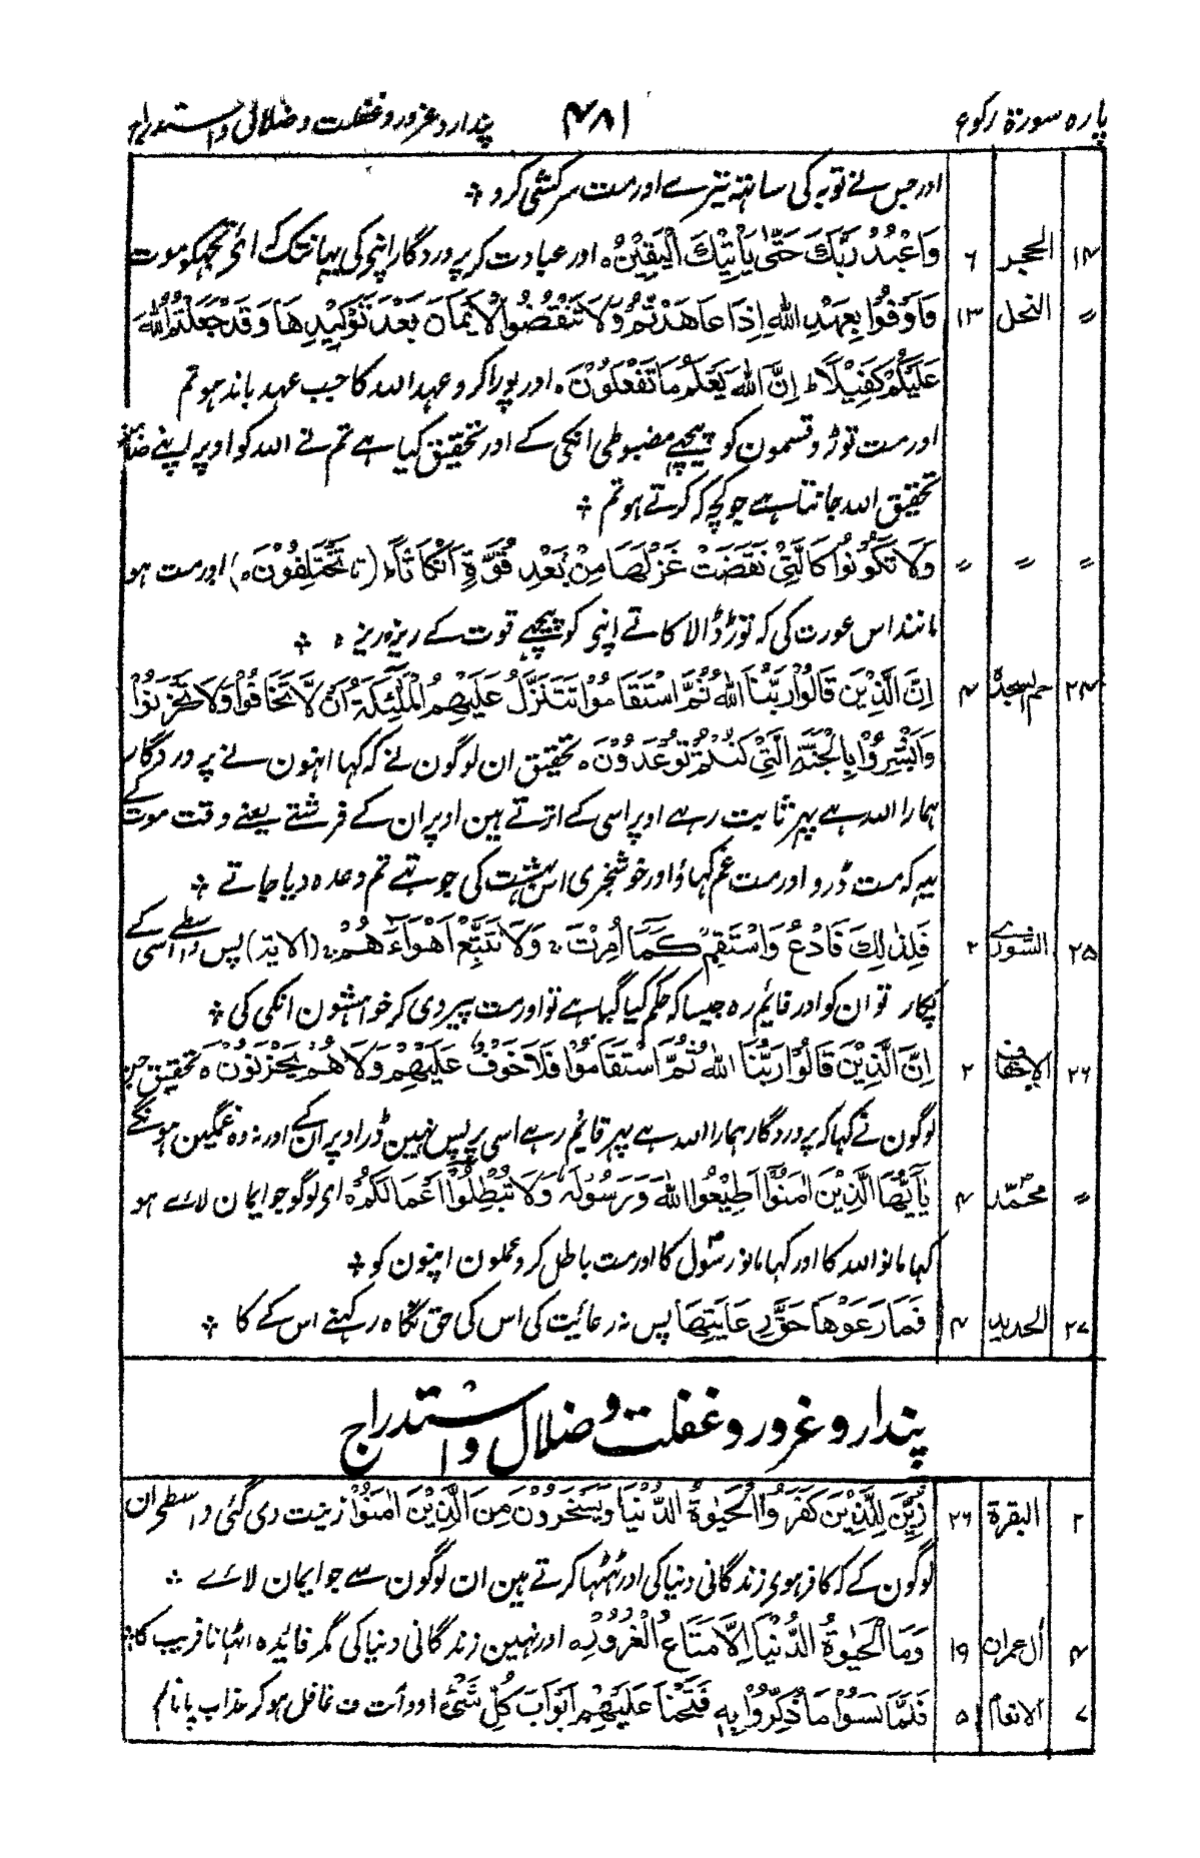 پاره سورۃ رکوع ۴۸۱ پندار و غرور و غفلت و ضلال و استدراج
اور جس نے توبہ کی ساتھ تیرے اور مت سرکشی کرو ؞
۱۴ الحجر ۶ وَاعْبُدْ رَبَّكَ حَتّٰى يَاْتِيَكَ الْيَقِيْنُ ہ اور عبادت کر پروردگار اپنے کی یہانتک کہ ائے تجھکو موت
〃 النحل ۱۳ وَاَوْفُوْا بِعَهْدِ اللهِ اِذَا عَاهَدْتُّمْ وَلَا تَنْقُضُوا الْاَيْمَانَ بَعْدَ تَوْكِيْدِهَا وَقَدْ جَعَلْتُمُ اللهَ
عَلَيْكُمْ كَفِيْلًا ط اِنَّ اللهَ يَعْلَمُ مَا تَفْعَلُوْنَ ہ اور پورا کرو عہد اللہ کا جب عہد باندھو تم
اور مت توڑو قسمون کو پیچھے مضبوطی انکی کے اور تحقیق کیا ہے تم نے اللہ کو اوپر اپنے ضامن
تحقیق اللہ جانتا ہے جو کچھ کہ کرتے ہو تم ؞
〃 〃 〃 وَلَا تَكُوْنُوْا كَالَّتِيْ نَقَضَتْ غَزْلَهَا مِنْ بَعْدِ قُوَّةٍ اَنْكَاثًا ط (تا تَخْتَلِفُوْنَ ہ) اور مت ہو
مانند اس عورت کی کہ توڑ ڈالا کاتے اپنی کو پیچھے قوت کے ریزہ ریزہ ؞
۲۴ حم السجدة ۴ اِنَّ الَّذِيْنَ قَالُوْا رَبُّنَا اللهُ ثُمَّ اسْتَقَامُوْا تَتَنَزَّلُ عَلَيْهِمُ الْمَلٰٓئِكَةُ اَنْ لَّا تَخَافُوْا وَلَا تَحْزَنُوْا
وَاَبْشِرُوْا بِالْجَنَّةِ الَّتِيْ كُنْتُمْ تُوْعَدُوْنَ ہ تحقیق ان لوگون نے کہ کہا انہون نے پروردگار
ہمارا اللہ ہے پہر ثابت رہے اوپر اسی کے اترتے ہین اوپر ان کے فرشتے یعنے وقت موت کے
یہہ کہ مت ڈرو اور مت غم کہاؤ اور خوشخبری اس بہشت کی جو تھے تم وعدہ دیا جاتے ؞
۲۵ الشورے ۲ فَلِذٰلِكَ فَادْعُ وَاسْتَقِمْ كَمَا اُمِرْتَ وَلَا تَتَّبِعْ اَهْوَاءَهُمْ (الایہ) پس واسطے اسی کے
پکار تو ان کو اور قایم رہ جیسا کہ حکم کیا گیا ہے تو اور مت پیروی کر خواہشون انکی کی ؞
۲۶ الاحقاف ۲ اِنَّ الَّذِيْنَ قَالُوْا رَبُّنَا اللهُ ثُمَّ اسْتَقَامُوْا فَلَا خَوْفٌ عَلَيْهِمْ وَلَا هُمْ يَحْزَنُوْنَ ہ تحقیق جن
لوگون نے کہا کہ پروردگار ہمارا اللہ ہے پہر قایم رہے اسی پر پس نہین ڈر اوپر ان کے اور نہ وہ غمگین ہونگے
〃 محمّد ۴ يٰٓاَيُّهَا الَّذِيْنَ اٰمَنُوْا اَطِيْعُوا اللهَ وَرَسُوْلَهٗ وَلَا تُبْطِلُوْا اَعْمَالَكُمْ ہ ای لوگو جو ایمان لائے ہو
کہا مانو اللہ کا اور کہا مانو رسول کا اور مت باطل کرو عملون اپنون کو ؞
۲۷ الحدید ۴ فَمَا رَعَوْهَا حَقَّ رِعَايَتِهَا پس نہ رعائیت کی اس کی حق نگاہ رکہنے اس کے کا ؞
پندار و غرور و غفلت و ضلال و استدراج
۲ البقرة ۲۶ زُيِّنَ لِلَّذِيْنَ كَفَرُوا الْحَيٰوةُ الدُّنْيَا وَيَسْخَرُوْنَ مِنَ الَّذِيْنَ اٰمَنُوْا زینت دی گئی واسطے ان
لوگون کے کہ کافر ہوی زندگانی دنیا کی اور ٹھٹھا کرتے ہین ان لوگون سے جو ایمان لائے ؞
۴ اٰل عمران ۱۹ وَمَا الْحَيٰوةُ الدُّنْيَا اِلَّا مَتَاعُ الْغُرُوْرِ ہ اور نہین زندگانی دنیا کی مگر فائیدہ اٹھانا فریب کا ؞
۷ الانعام ۵ فَلَمَّا نَسُوْا مَا ذُكِّرُوْا بِهٖ فَتَحْنَا عَلَيْهِمْ اَبْوَابَ كُلِّ شَيْءٍ غافل ہو کر عذاب پانا